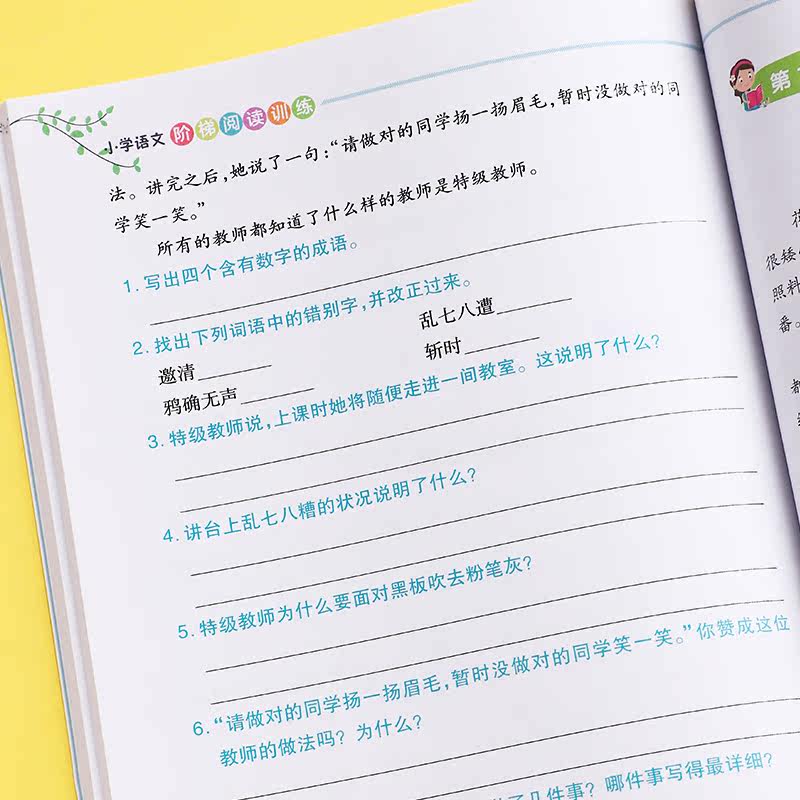 小学语文 阶梯阅读训练
法。讲完之后，她说了一句：“请做对的同学扬一扬眉毛，暂时没做对的同
学笑一笑。”
所有的教师都知道了什么样的教师是特级教师。
1. 写出四个含有数字的成语。
2. 找出下列词语中的错别字，并改正过来。
邀清 乱七八遭
鸦确无声 斩时
3. 特级教师说，上课时她将随便走进一间教室。这说明了什么？
4. 讲台上乱七八糟的状况说明了什么？
5. 特级教师为什么要面对黑板吹去粉笔灰？
6. “请做对的同学扬一扬眉毛，暂时没做对的同学笑一笑。”你赞成这位
教师的做法吗？为什么？
了几件事？哪件事写得最详细？
第
很矮
照料
番。